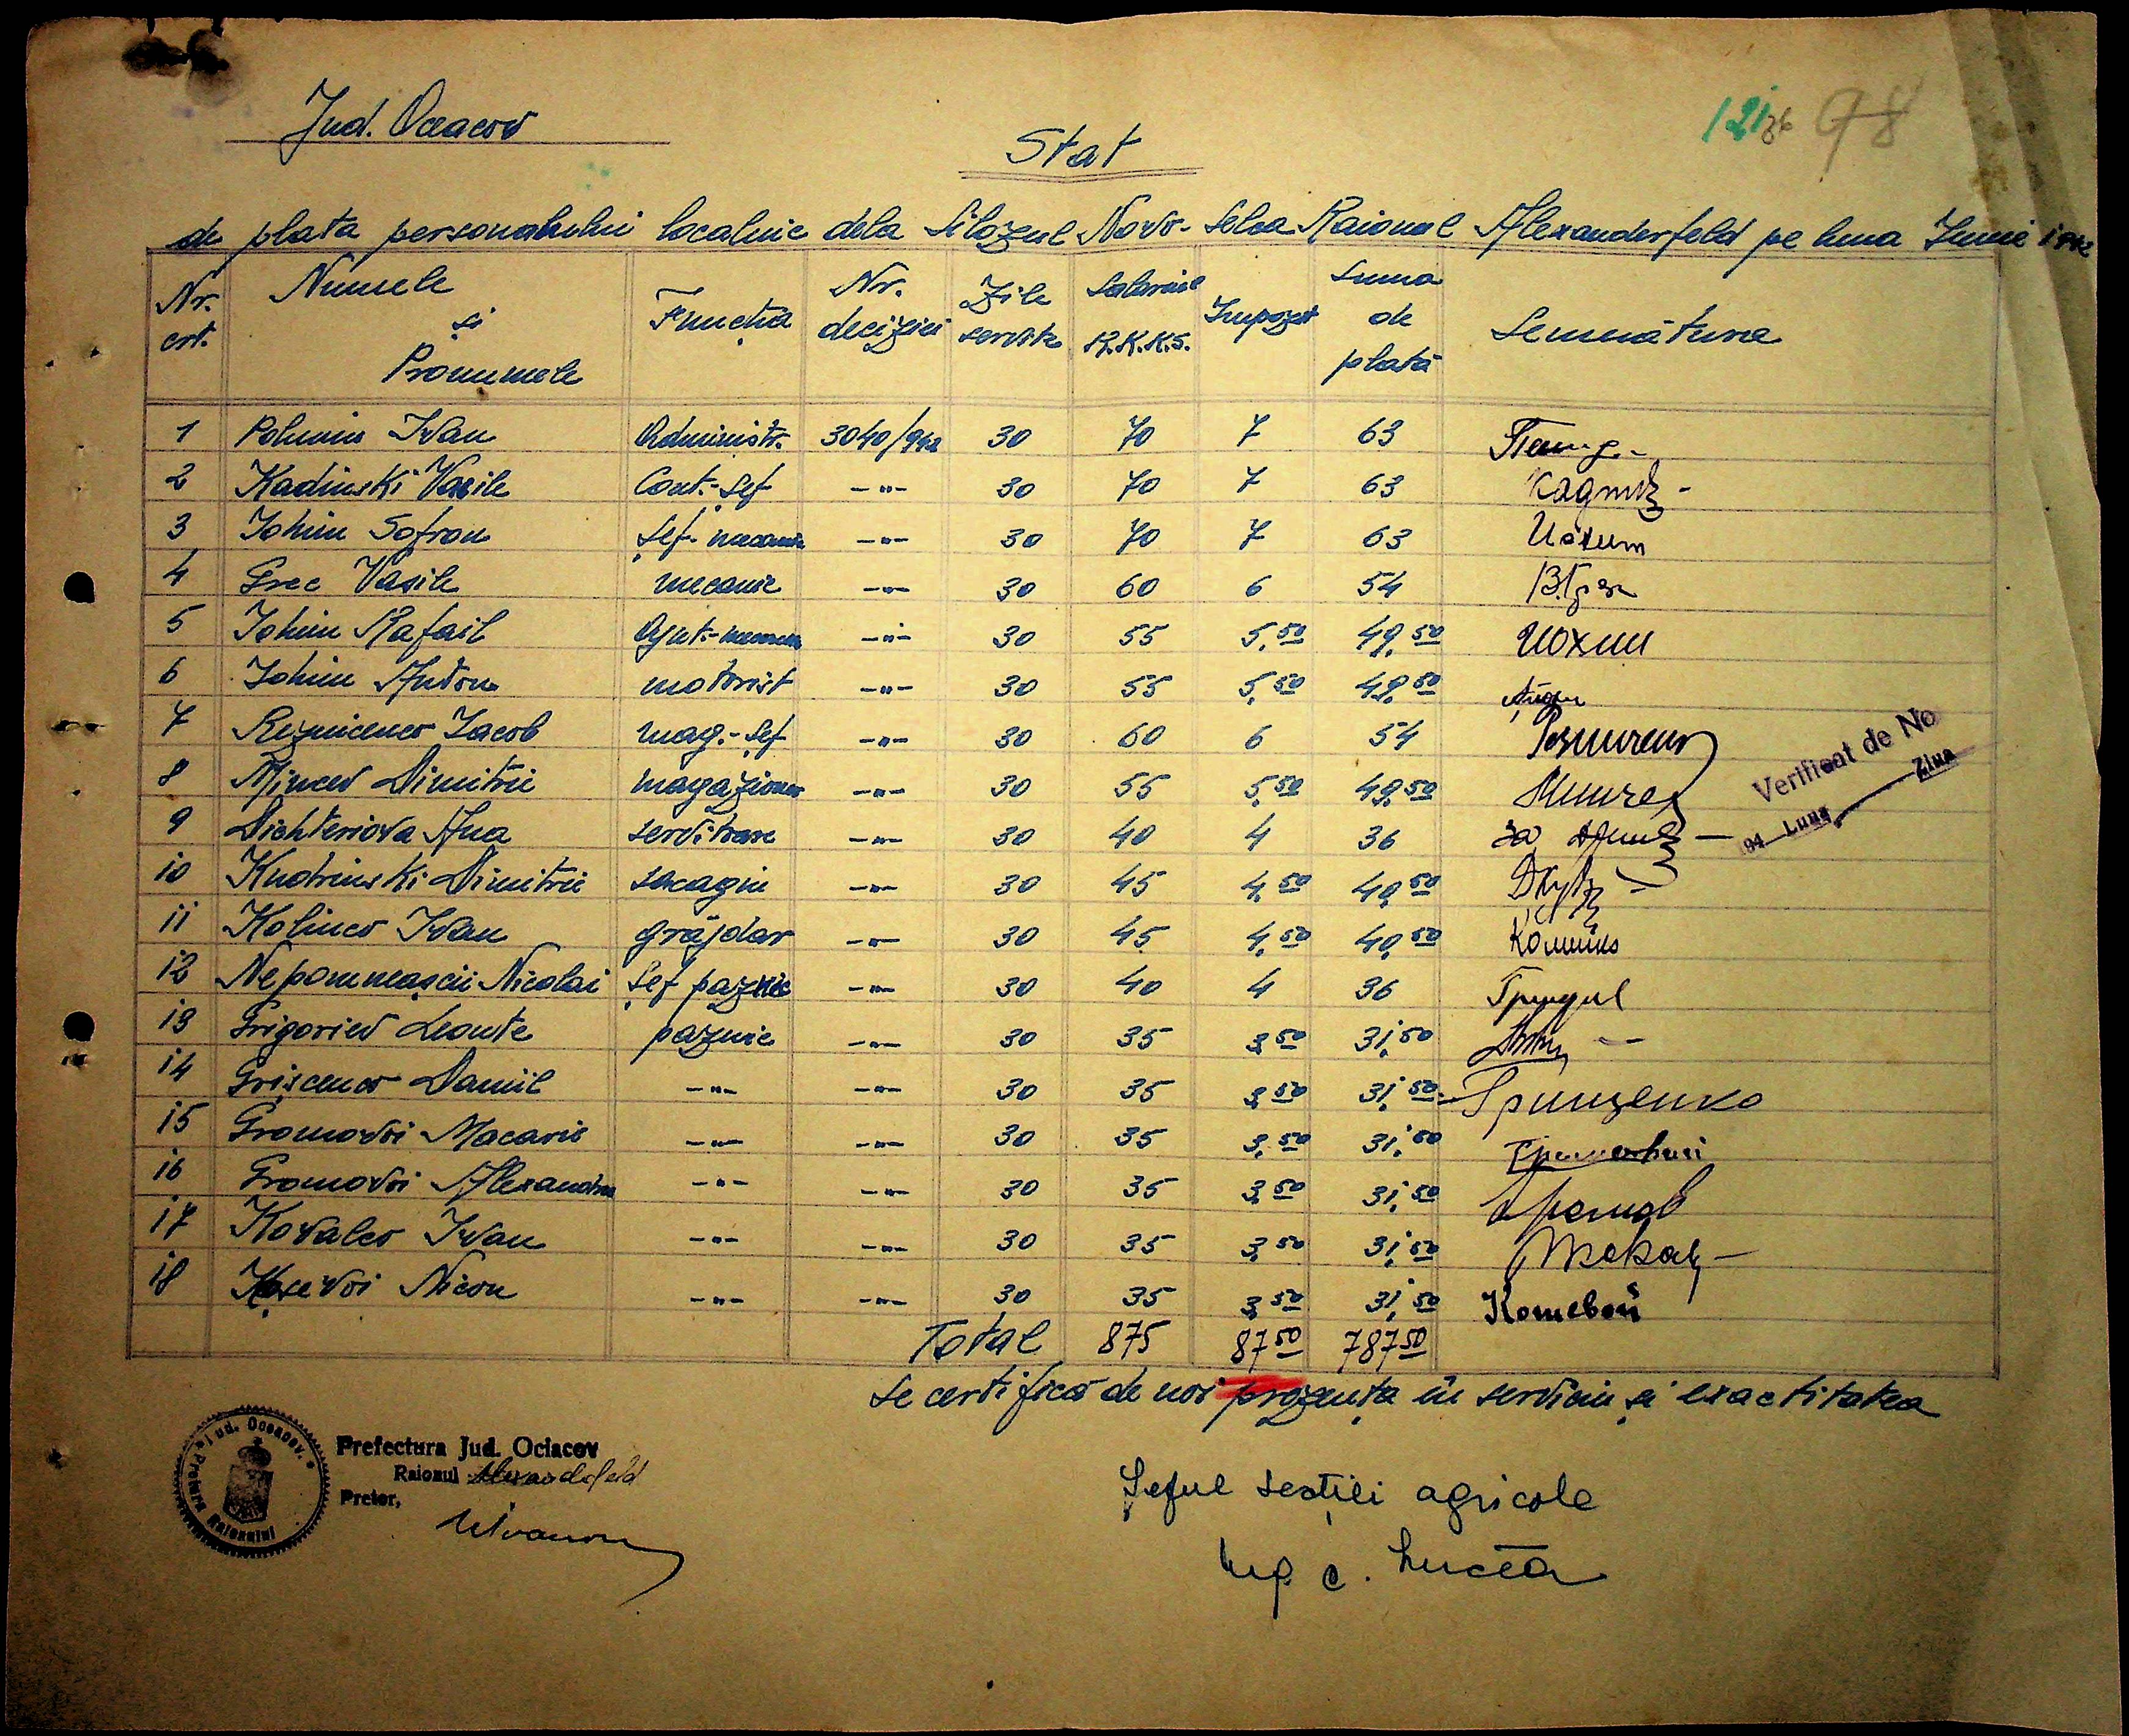 Jud. Oceacov
121 36 98
Stat
de plata personalului localnic dela Silozul Novo-Selca Raionul Alexanderfeld pe luna Iunie 1942
Nr. crt. Numele și Pronumele Funcția Nr. deciziei Zile servite Salariul R.K.K.S. Impozit Suma de plată Semnătura
1 Ivan Administr. 3040/942 30 70 7 63
2 Kadinski Vasile Cont.-șef -"- 30 70 7 63
3 Iohim Sofron șef-mecanic -"- 30 70 7 63 Иохим
4 Grec Vasile mecanic -"- 30 60 6 54
5 Iohim Rafail Ajut.-mecanic -"- 30 55 5,50 49,50 Иохим
6 Iohim Anton motorist -"- 30 55 5,50 49,50
7 Reznicenco Iacob mag.-șef -"- 30 60 6 54
8 Mincev Dimitrii magazioner -"- 30 55 5,50 49,50
9 Dichteriova Ana servitoare -"- 30 40 4 36 за
10 Kudrinski Dimitrii sacagiu -"- 30 45 4,50 40,50
11 Kolinco Ivan grăjdar -"- 30 45 4,50 40,50
12 Nicolai șef paznic -"- 30 40 4 36
13 Grigoriev Leonte paznic -"- 30 35 3,50 31,50
14 Grișcenco Daniil -"- -"- 30 35 3,50 31,50 Грищенко
15 Gromovoi Macarie -"- -"- 30 35 3,50 31,50
16 Gromovoi Alexandru -"- -"- 30 35 3,50 31,50
17 Kovalco Ivan -"- -"- 30 35 3,50 31,50
18 Koșevoi Nicon -"- -"- 30 35 3,50 31,50 Кошевой
Total 875 87 50 787 50
Verificat de No
194 Luna Ziua
Se certifică de noi prezența în serviciu și exactitatea
Prefectura Jud. Ociacov
Raionul Alexandefeld
Pretor,
Prefect. Jud. Oceacov. Raionului
Șeful secției agricole
Ing. C.